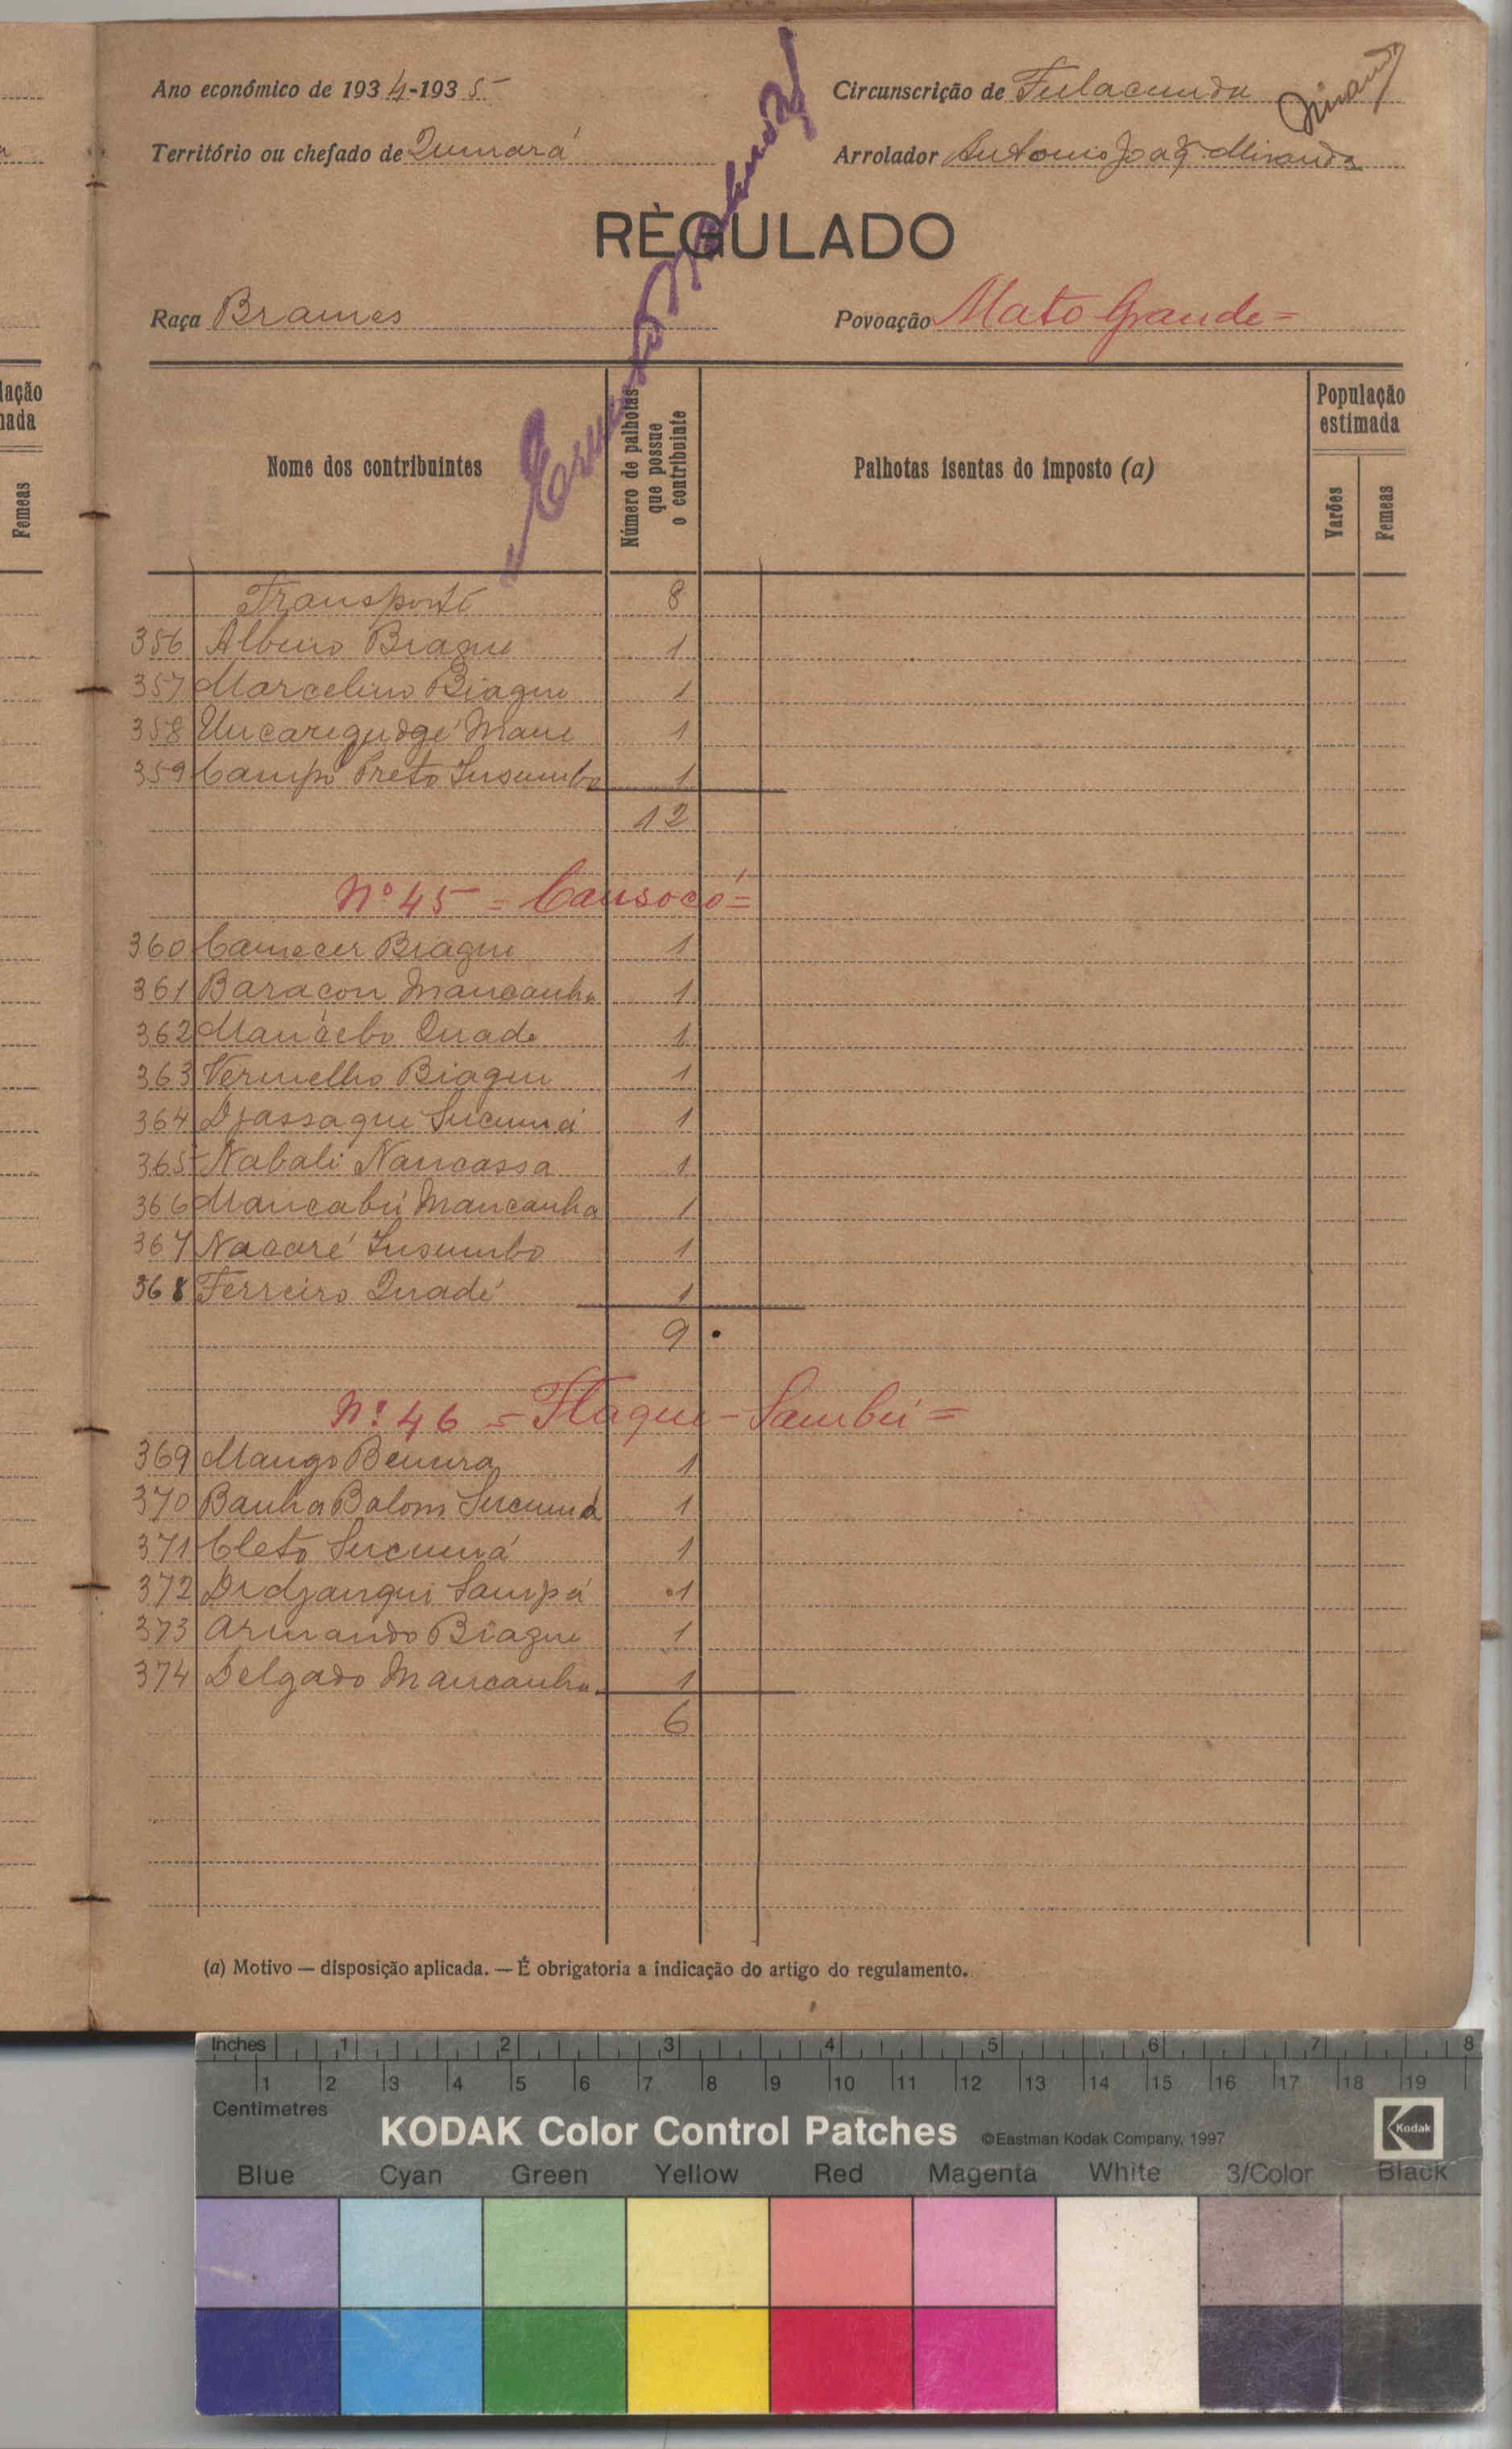 Ano económico de 1934-1935
Circunscrição de Fulacunda
Território ou chefado de Quinará
Arrolador Antonio Joaq. Miranda
RÈGULADO
Raça Brames
Povoação Mato Grande =
Nome dos contribuintes
Número de palhotas que possue o contribuinte
Palhotas isentas do imposto (a)
População estimada
Varões
Femeas
lação
nada
Femeas
Transporte 8
356 Albino Biague 1
357 Marcelino Biague 1
358 Mane 1
359 Campo Preto Insumbo 1
12
Nº 45 = Cansocó =
360 Biague 1
361 Baracon Mancanha 1
362 Mancebo Quade 1
363 Vermelho Biague 1
364 Djassaqui Sucumá 1
365 Nabali Nancassa 1
366 Mancabú Mancanha 1
367 Nacaré Insumbo 1
368 Ferreiro Quadé 1
9
Nº 46 = Flaque-Sambú =
369 Mango Bemura 1
370 Banha Balom Sucumá 1
371 Cleto Sucumá 1
372 Didjanqui Sampá 1
373 Armando Biague 1
374 Delgado Mancanha 1
6
(a) Motivo — disposição aplicada. — É obrigatoria a indicação do artigo do regulamento.
Inches 1 2 3 4 5 6 7 8
1 2 3 4 5 6 7 8 9 10 11 12 13 14 15 16 17 18 19
Centimetres
KODAK Color Control Patches ©Eastman Kodak Company, 1997 Kodak
Blue Cyan Green Yellow Red Magenta White 3/Color Black